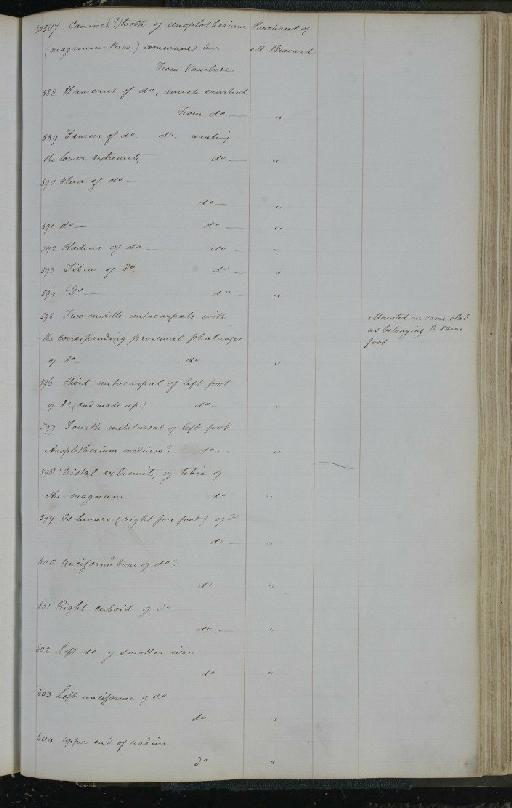 Canine? Tooth of Anoplotherium Purchased of
(magnum-Cuv.) M. Bravard
From Vaucluse
588 Humerus of do, much crushed
From do — "
589 Femur of do do wanting
the lower extremity do — "
590 Ulna of do —
do — "
591 do — do — "
592 Radius of do — do — "
593 Tibia of do do — "
594 Do — do — "
595 Two middle metacarpals with
the corresponding proximal phalanges
of do — do "
Mounted on same slab
as belonging to same
foot
596 Third metacarpal of left foot
of do (and made up) do — "
597 Fourth metatarsal of left foot
Anoplotherium medium? do — "
598 Distal extremity of tibia of
An. magnum do "
599 Os lunare (right fore foot) of do
do — "
600 Cuneiform bone of do.
do "
601 Right cuboid of do
do — "
602 Left do of smaller size
do "
603 Left unciforme of do
do "
604 Upper end of radius
do "